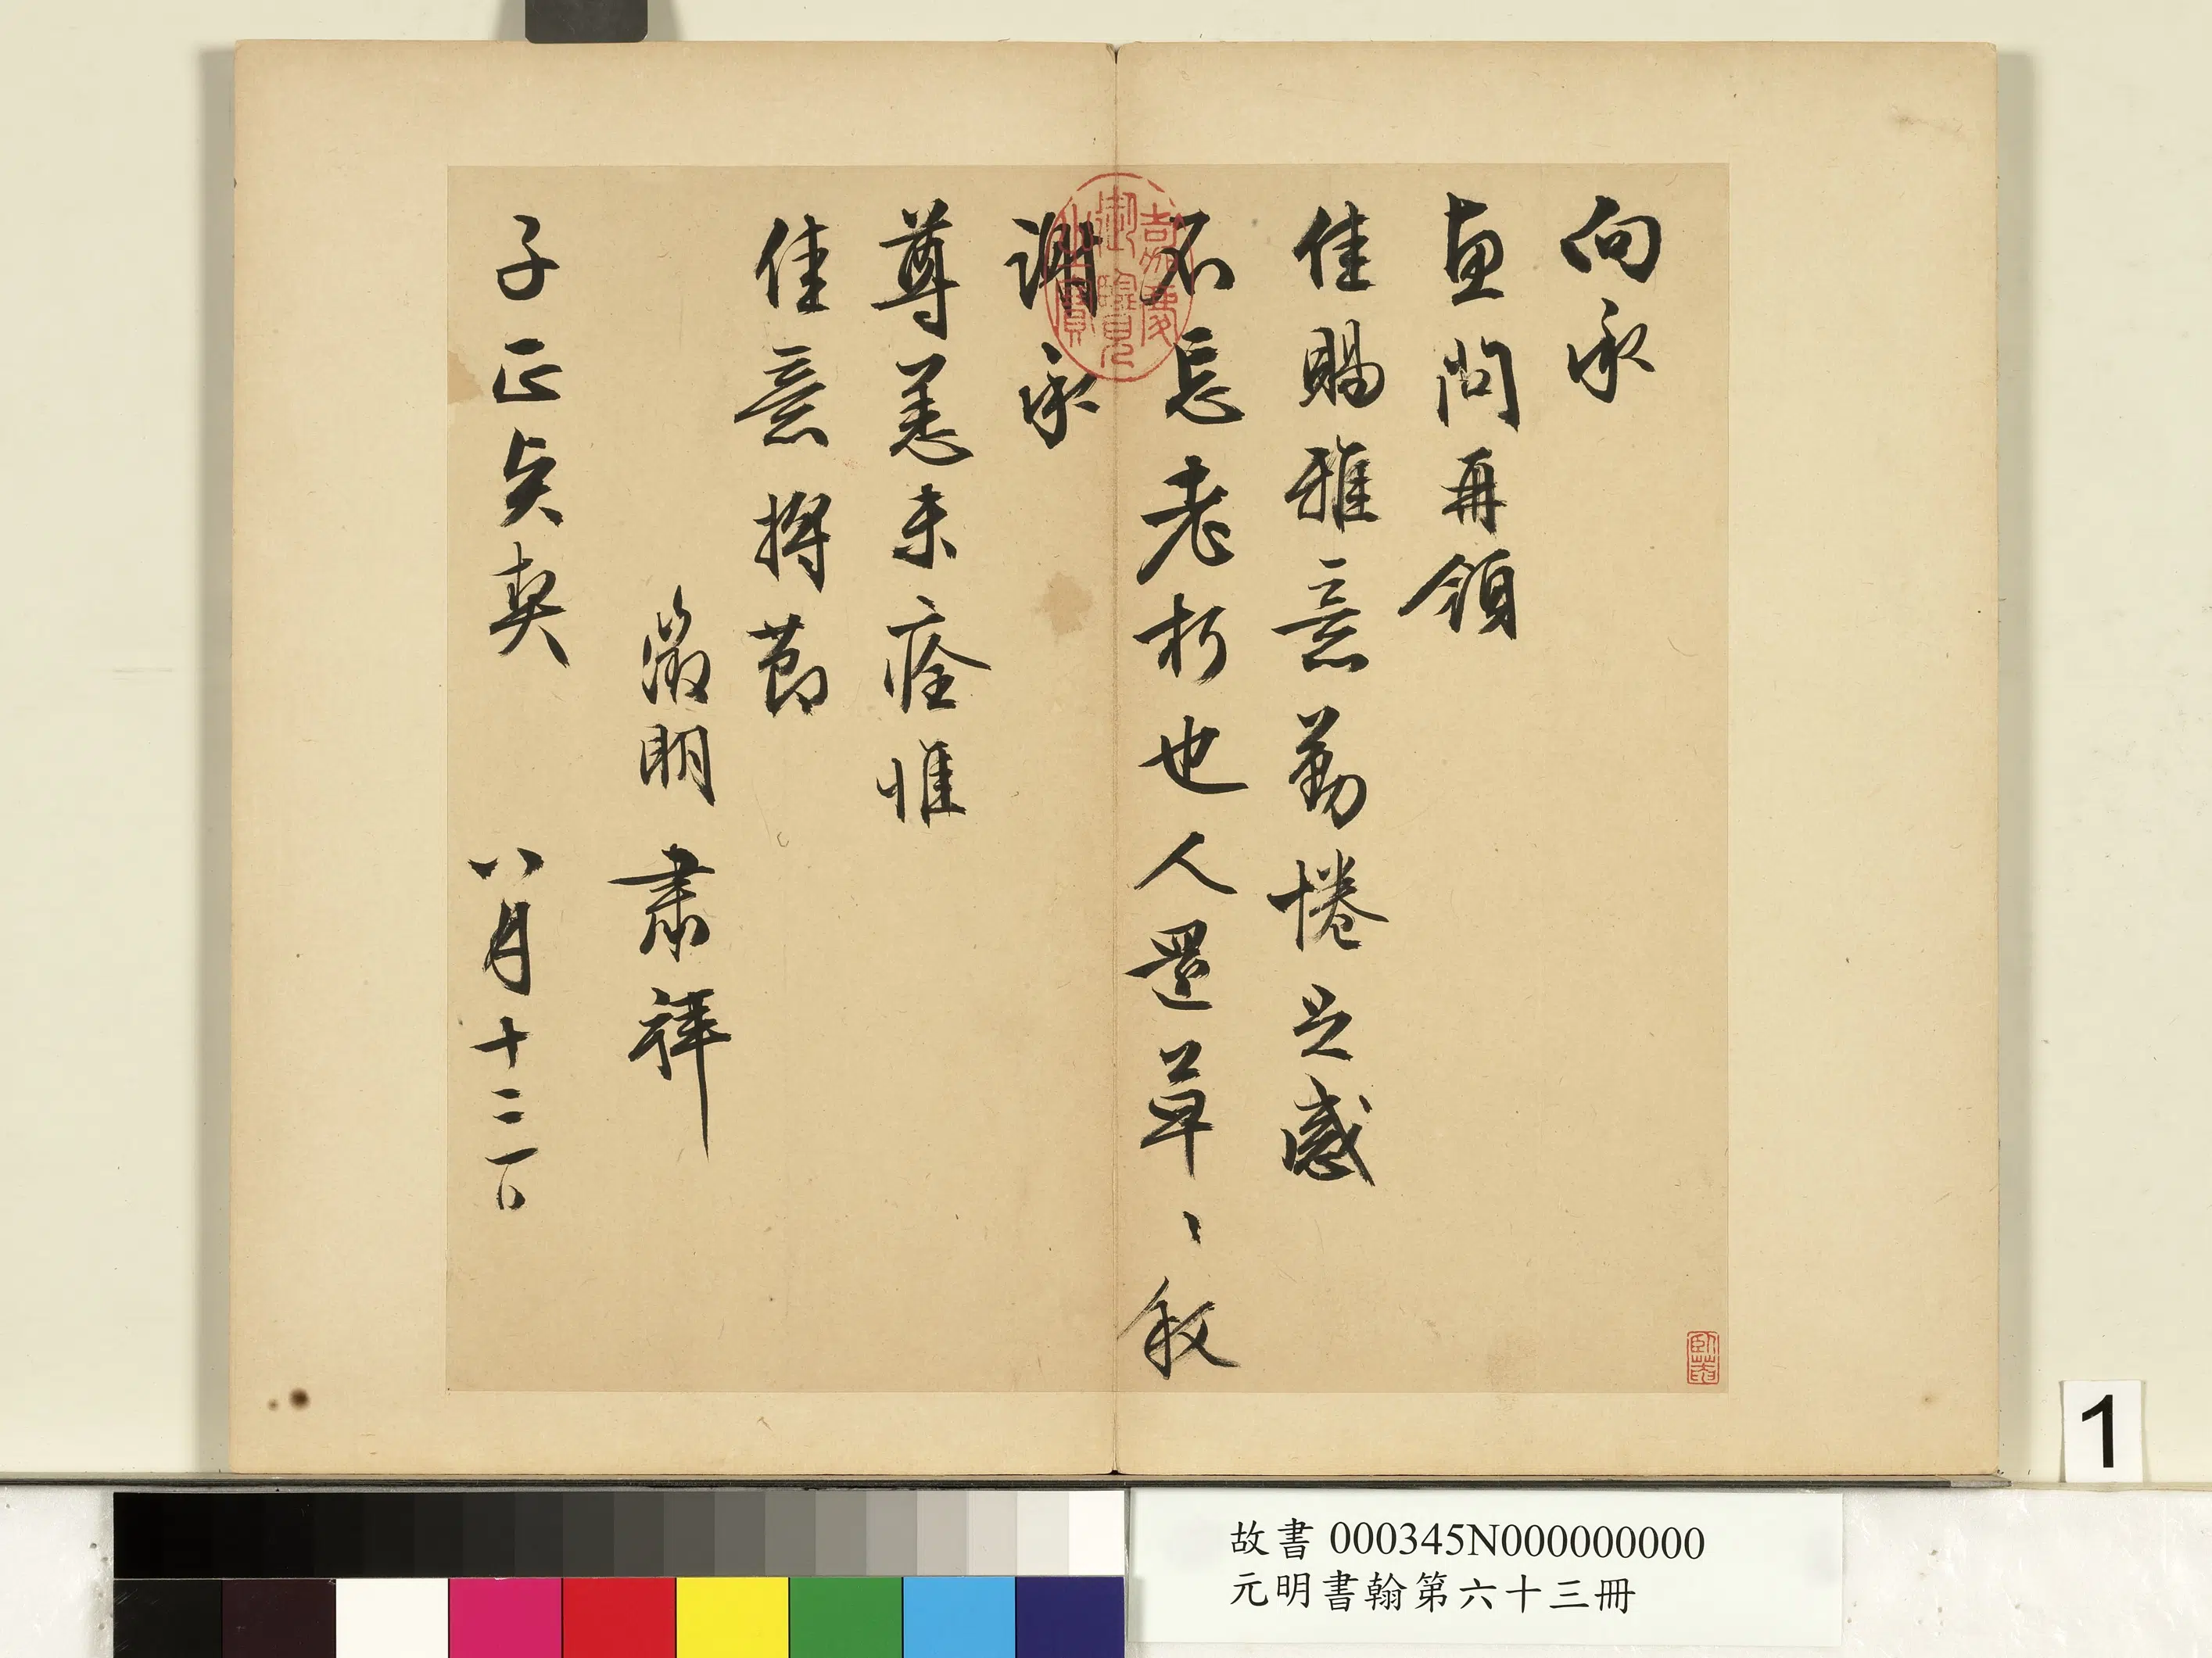 向承
惠問再領
佳賜雅意勤惓足感
不忘老朽也人還草〻敘
謝承
尊恙未痊惟
佳意將節
徵明肅拜
子正契 八月十三日
嘉慶御覽之寶
1
故書 000345N000000000
元明書翰第六十三冊